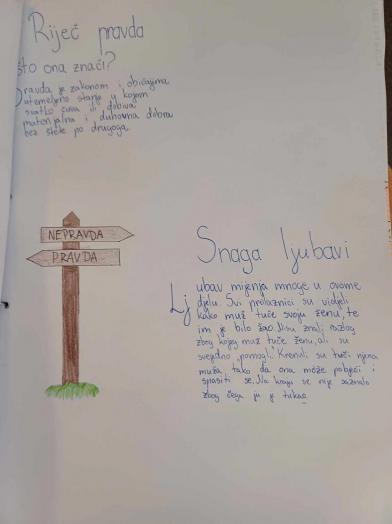 Riječ pravda
što ona znači?
Pravda je zakonom i običajima
utemeljeno stanje u kojem
svatko čuva ili dobiva
materijalna i duhovna dobra
bez štete po drugoga
NEPRAVDA
PRAVDA
Snaga ljubavi
Ljubav mijenja mnoge u ovome
djelu. Svi prolaznici su vidjeli
kako muž tuče svoju ženu, te
im je bilo žao. Nisu znali razlog
zbog kojeg muž tuče ženu, ali su
svejedno pomogli. Krenuli su tući njena
muža tako da ona može pobjeći i
spasiti se. Na kraju se nije saznalo
zbog čega ju je tukao